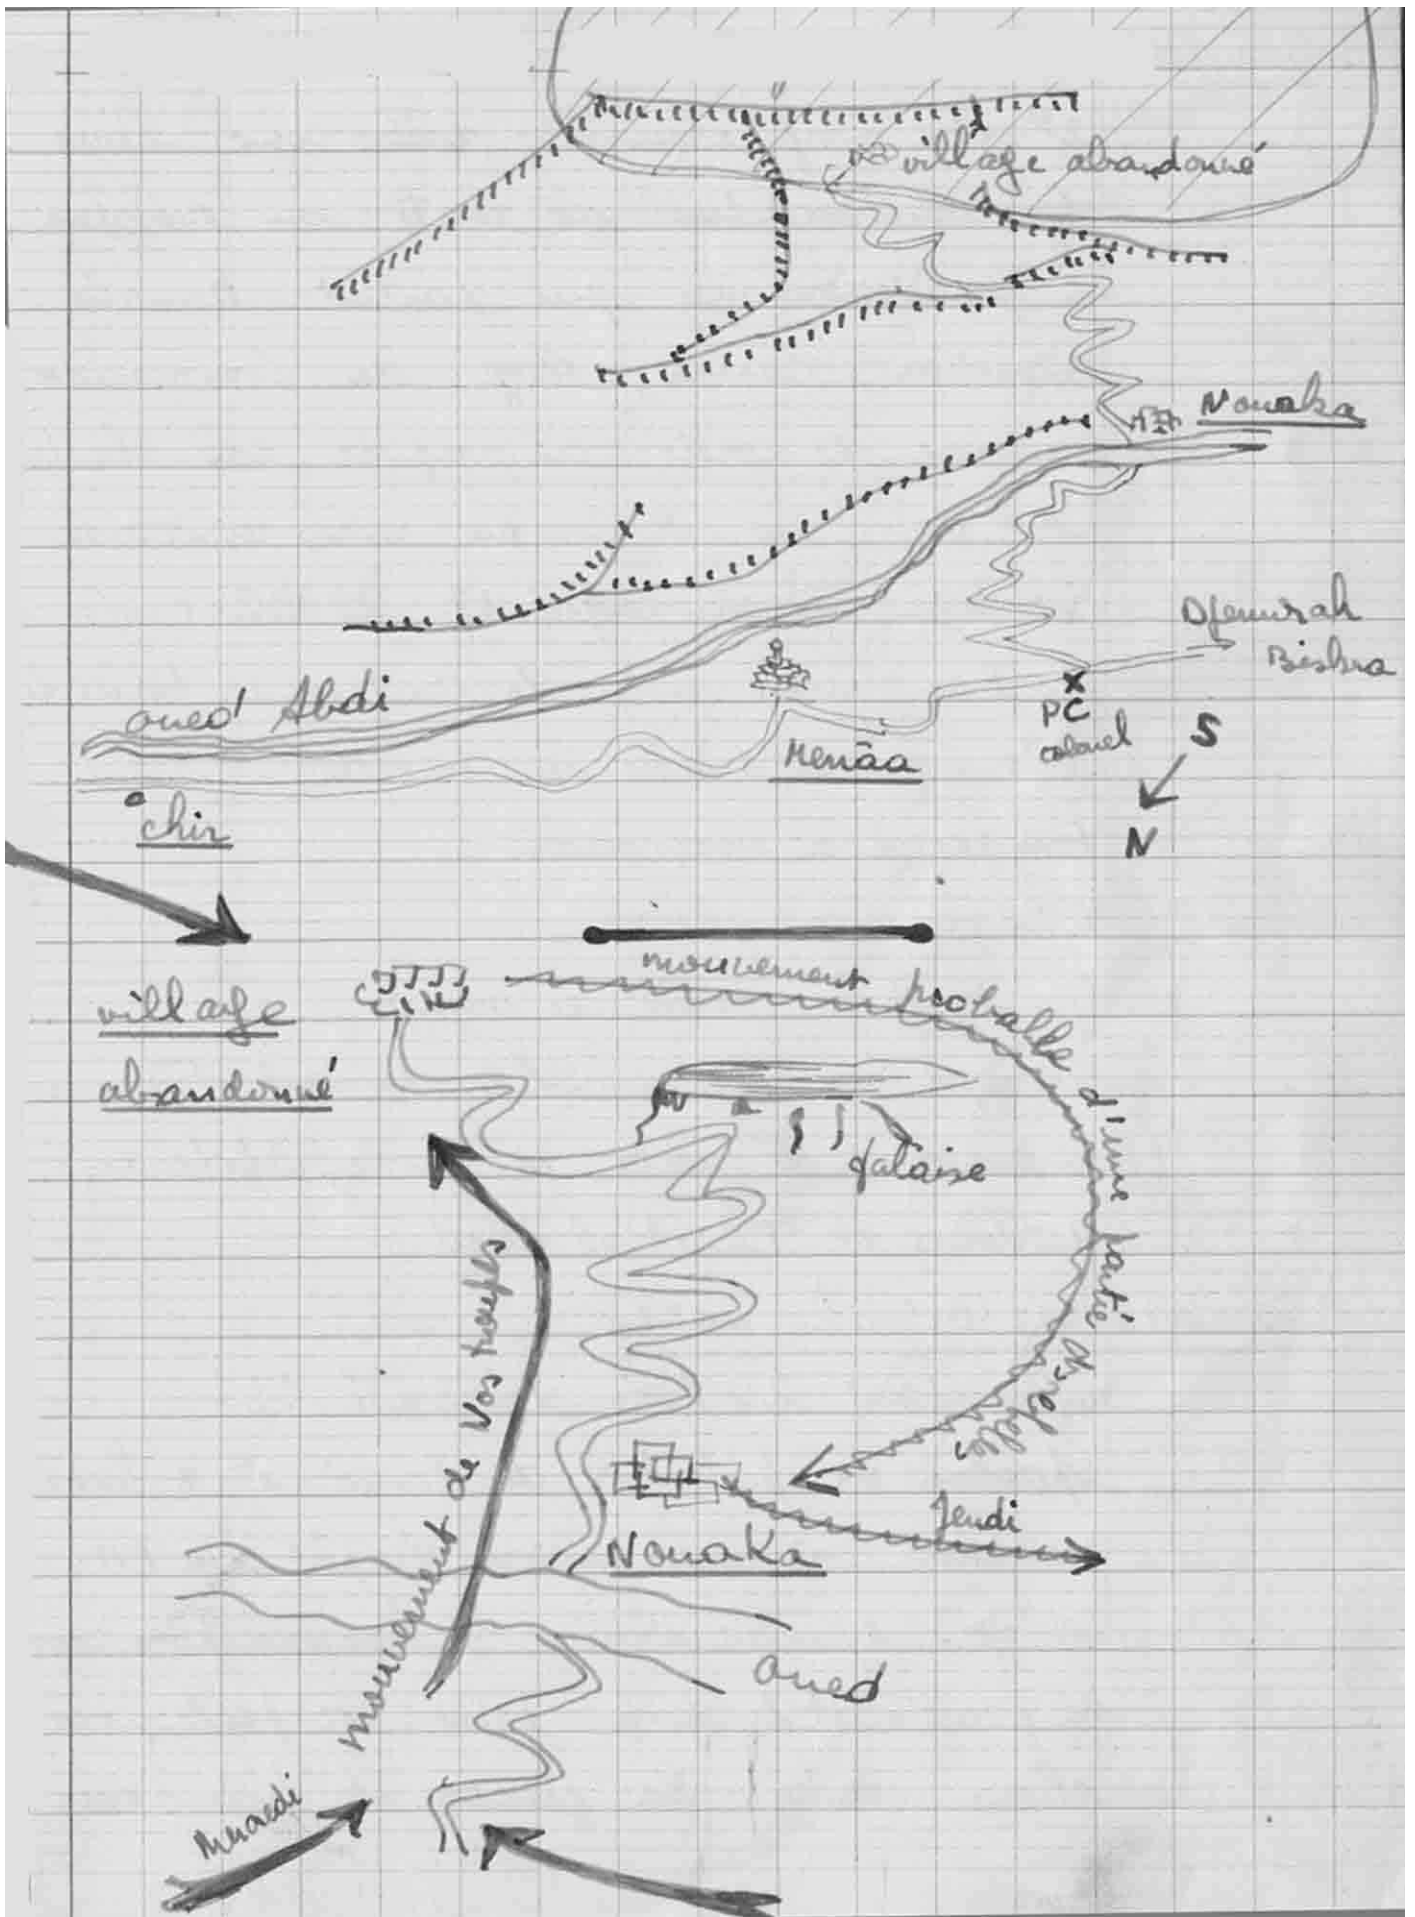 village abandonné
Nouaka
Djemorah
Biskra
oued Abdi
PC
colonel
S
N
Menâa
chir
village
abandonné
mouvement probable d'une partie des rebelles
falaise
mouvement de Vos troupes
Jendi
NouaKa
oued
Mercredi